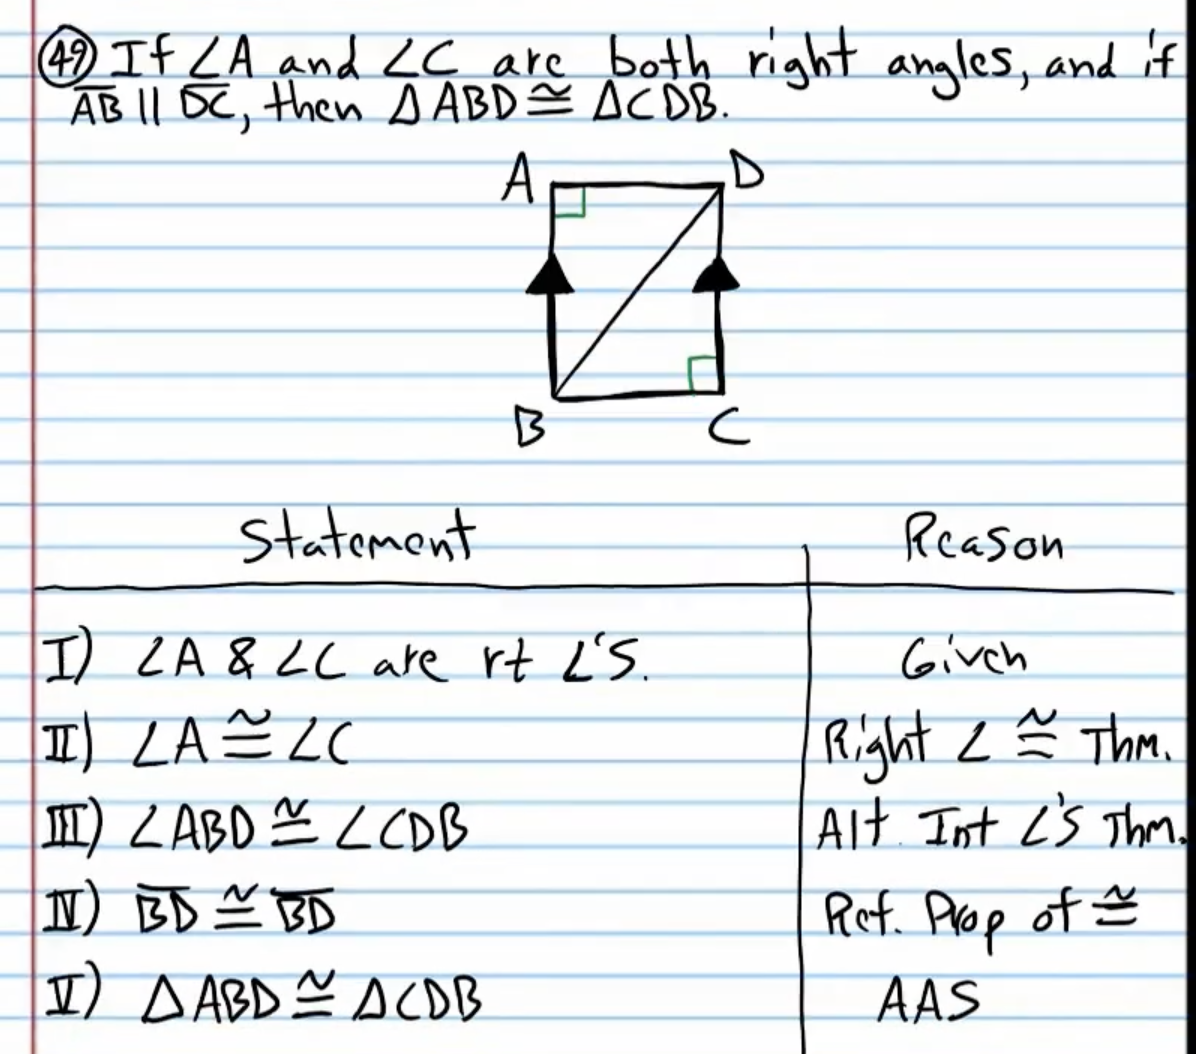 49 If ∠A and ∠C are both right angles, and if
A̅B̅ || D̅C̅, then △ABD ≅ △CDB.
A D
B C
Statement Reason
I) ∠A & ∠C are rt ∠'s. Given
II) ∠A ≅ ∠C Right ∠ ≅ Thm.
III) ∠ABD ≅ ∠CDB Alt. Int ∠'s Thm.
IV) B̅D̅ ≅ B̅D̅ Ref. Prop of ≅
V) △ABD ≅ △CDB AAS